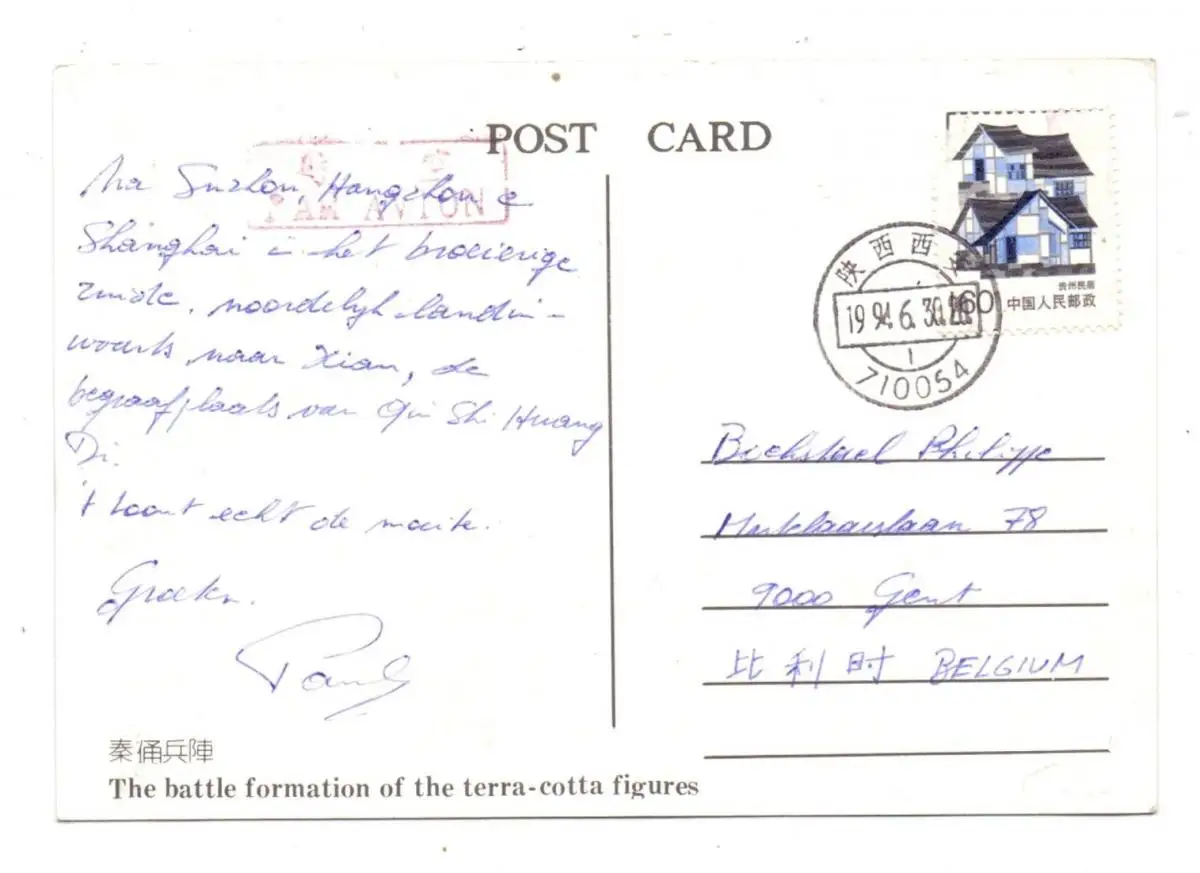 POST CARD
航 空
PAR AVION
Na Suzhou, Hangzhou e
Shanghai in het broeierige
zuide, noordelijk landin-
waarts naar Xian, de
begraafplaats van Qin Shi Huang
Di.
't Loont echt de moeite.
Groeten.
Paul
秦俑兵陣
The battle formation of the terra-cotta figures
贵州民居
1.60 中国人民邮政
陕西西安
1994.6.30.20
1
710054
Philippe
78
9000 Gent
比利时 BELGIUM